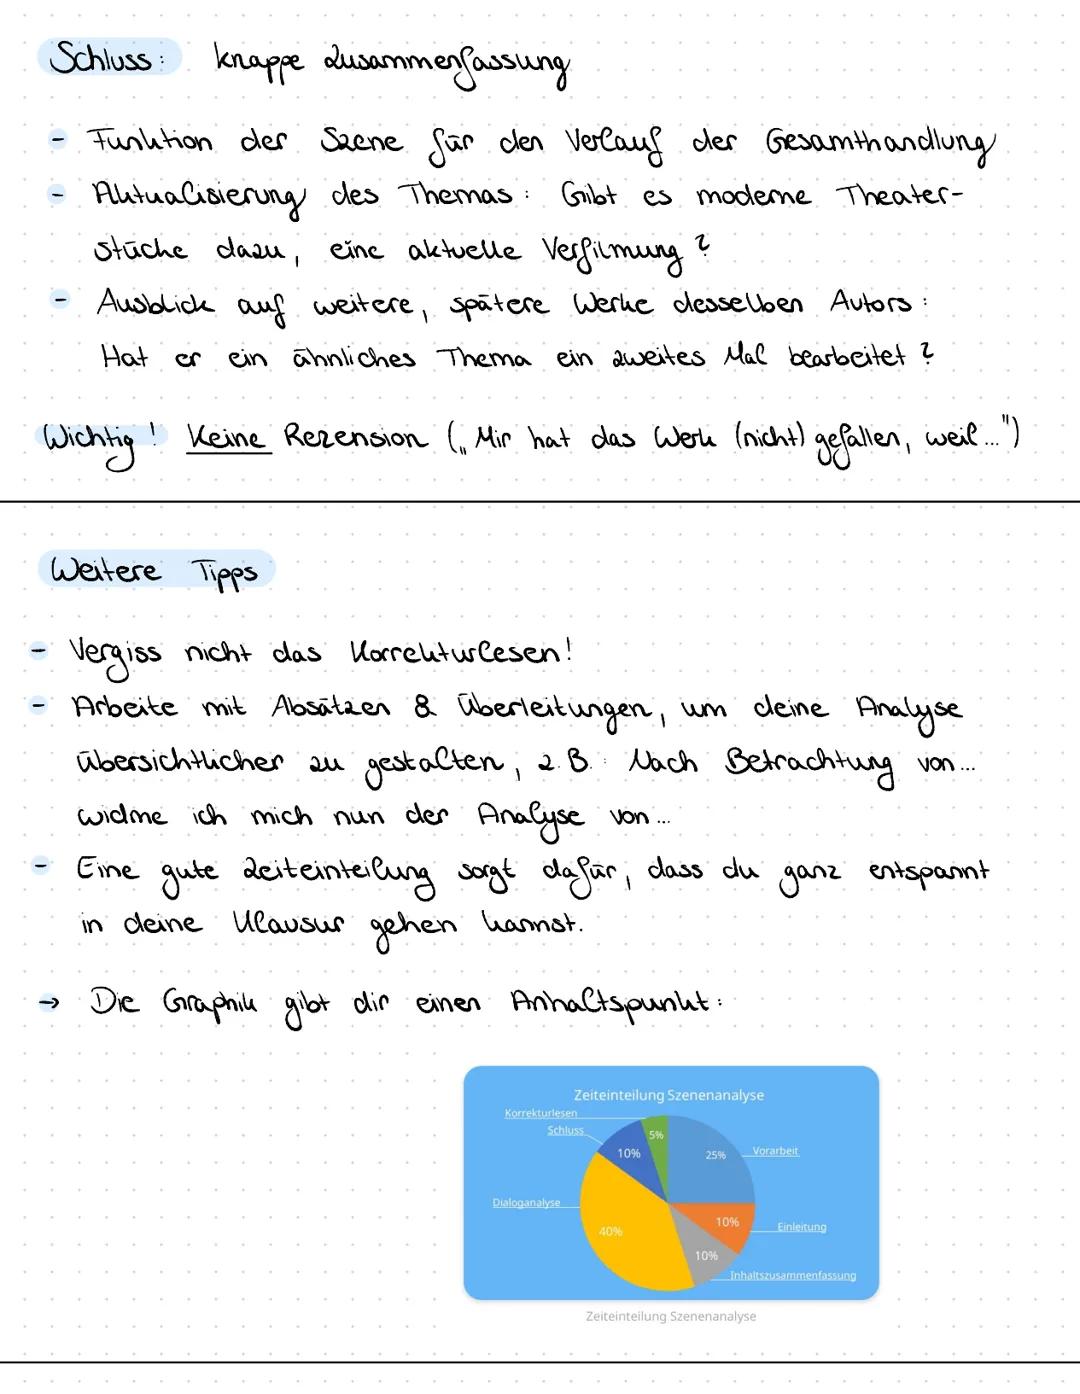 Schluss: knappe Zusammenfassung
- Funktion der Szene für den Verlauf der Gesamthandlung
- Aktualisierung des Themas: Gibt es moderne Theater-
stücke dazu, eine aktuelle Verfilmung?
- Ausblick auf weitere, spätere Werke desselben Autors:
Hat er ein ähnliches Thema ein zweites Mal bearbeitet?
Wichtig! Keine Rezension („Mir hat das Werk (nicht) gefallen, weil...")
Weitere Tipps
- Vergiss nicht das Korrekturlesen!
- Arbeite mit Absätzen & Überleitungen, um deine Analyse
übersichtlicher zu gestalten, z.B.: Nach Betrachtung von...
widme ich mich nun der Analyse von...
- Eine gute Zeiteinteilung sorgt dafür, dass du ganz entspannt
in deine Klausur gehen kannst.
→ Die Graphik gibt dir einen Anhaltspunkt:
Zeiteinteilung Szenenanalyse
Korrekturlesen
Schluss
5%
10%
25%
Vorarbeit
Dialoganalyse
40%
10%
Einleitung
10%
Inhaltszusammenfassung
Zeiteinteilung Szenenanalyse